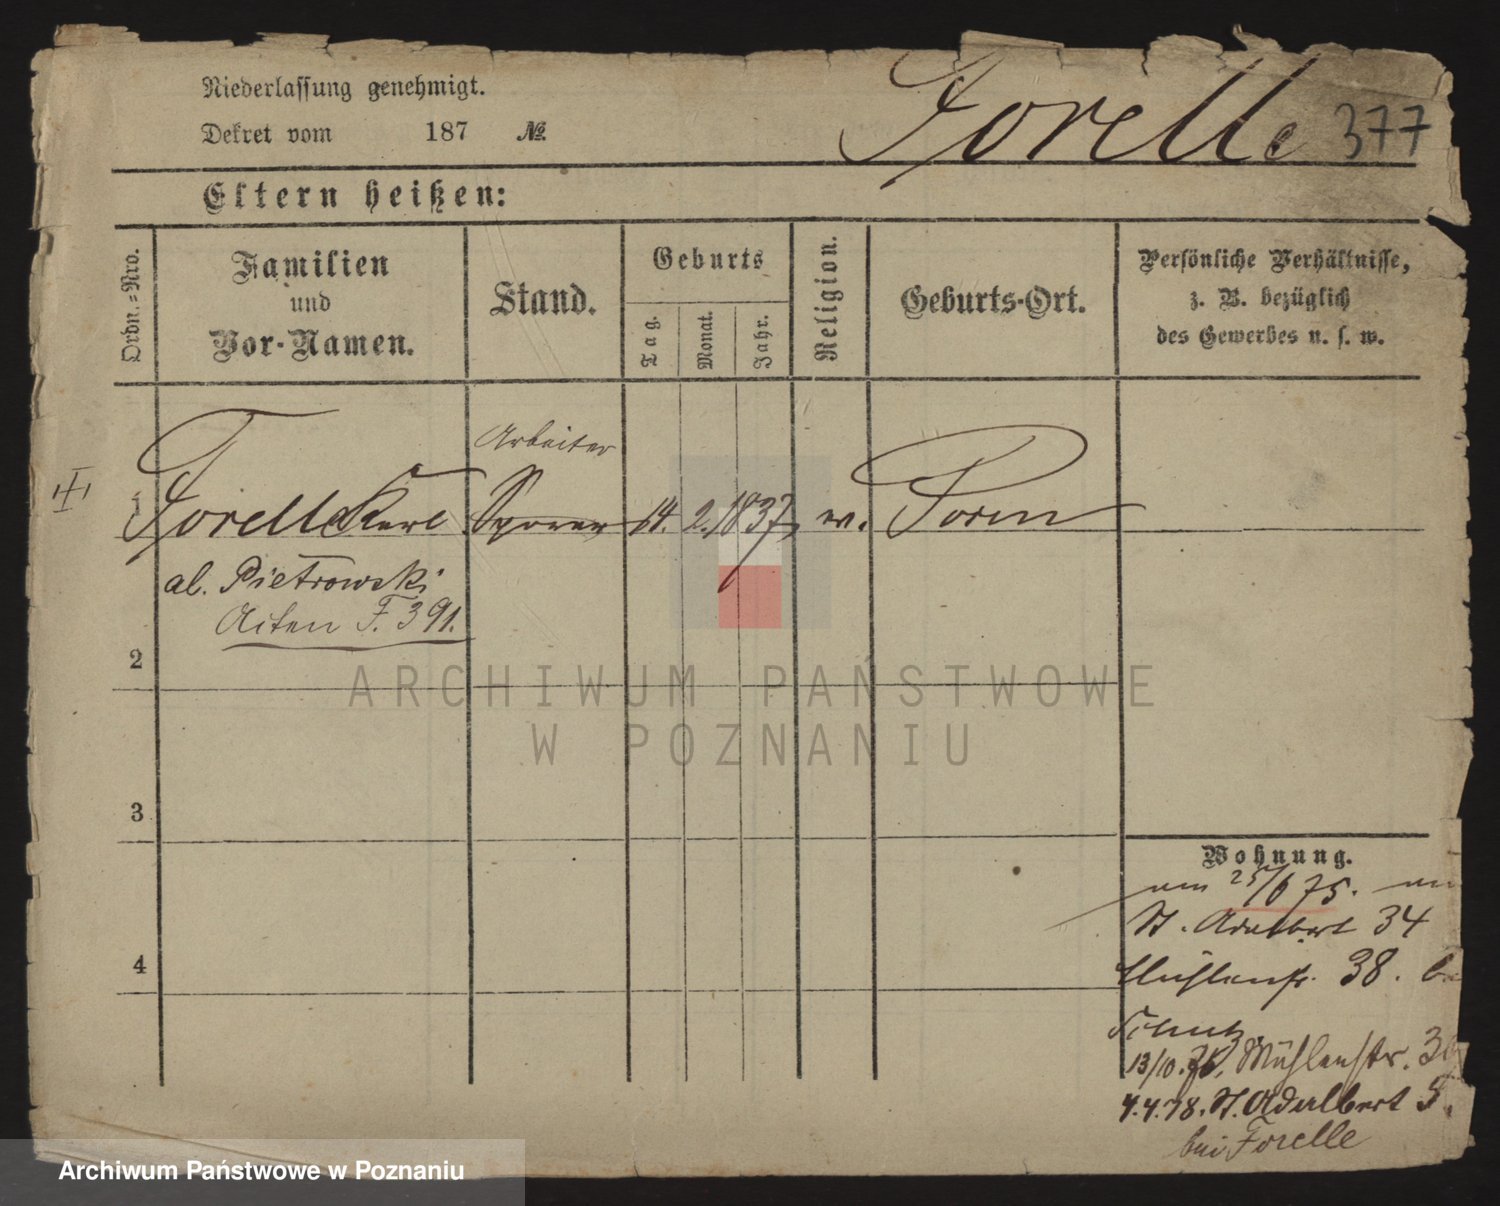 Niederlassung genehmigt.
Dekret vom 187 №
Forelle 377
Eltern heißen:
Ordn.-Nro.
Familien
und
Vor-Namen.
Stand.
Geburts
Tag.
Monat.
Jahr.
Religion.
Geburts-Ort.
Persönliche Verhältnisse,
z. B. bezüglich
des Gewerbes u. s. w.
Arbeiter
1 Forelle Karl 14. 2. 1837
al. Pietrowski
Akten F. 391.
2
3
4
Wohnung.
25/6 75.
St. Adalbert 34
Mühlenstr. 38.
Schutz
13/10. 76. Mühlenstr.
4.4.78. St. Adalbert 5.
bei Forelle
ARCHIWUM PAŃSTWOWE
W POZNANIU
Archiwum Państwowe w Poznaniu